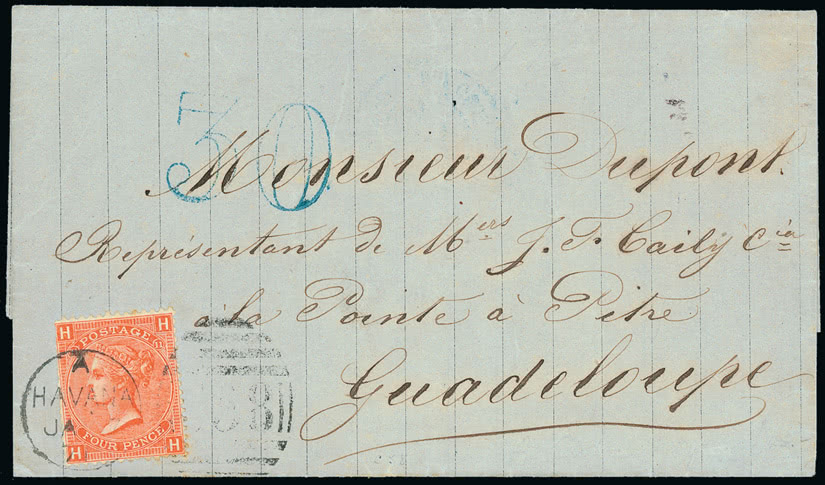 30
Monsieur Dupont.
Représentant de Mers J. F. Caily Cie
à la Pointe à Pitre
Guadeloupe
H POSTAGE H
H FOUR PENCE H
A
HAVANA
JA